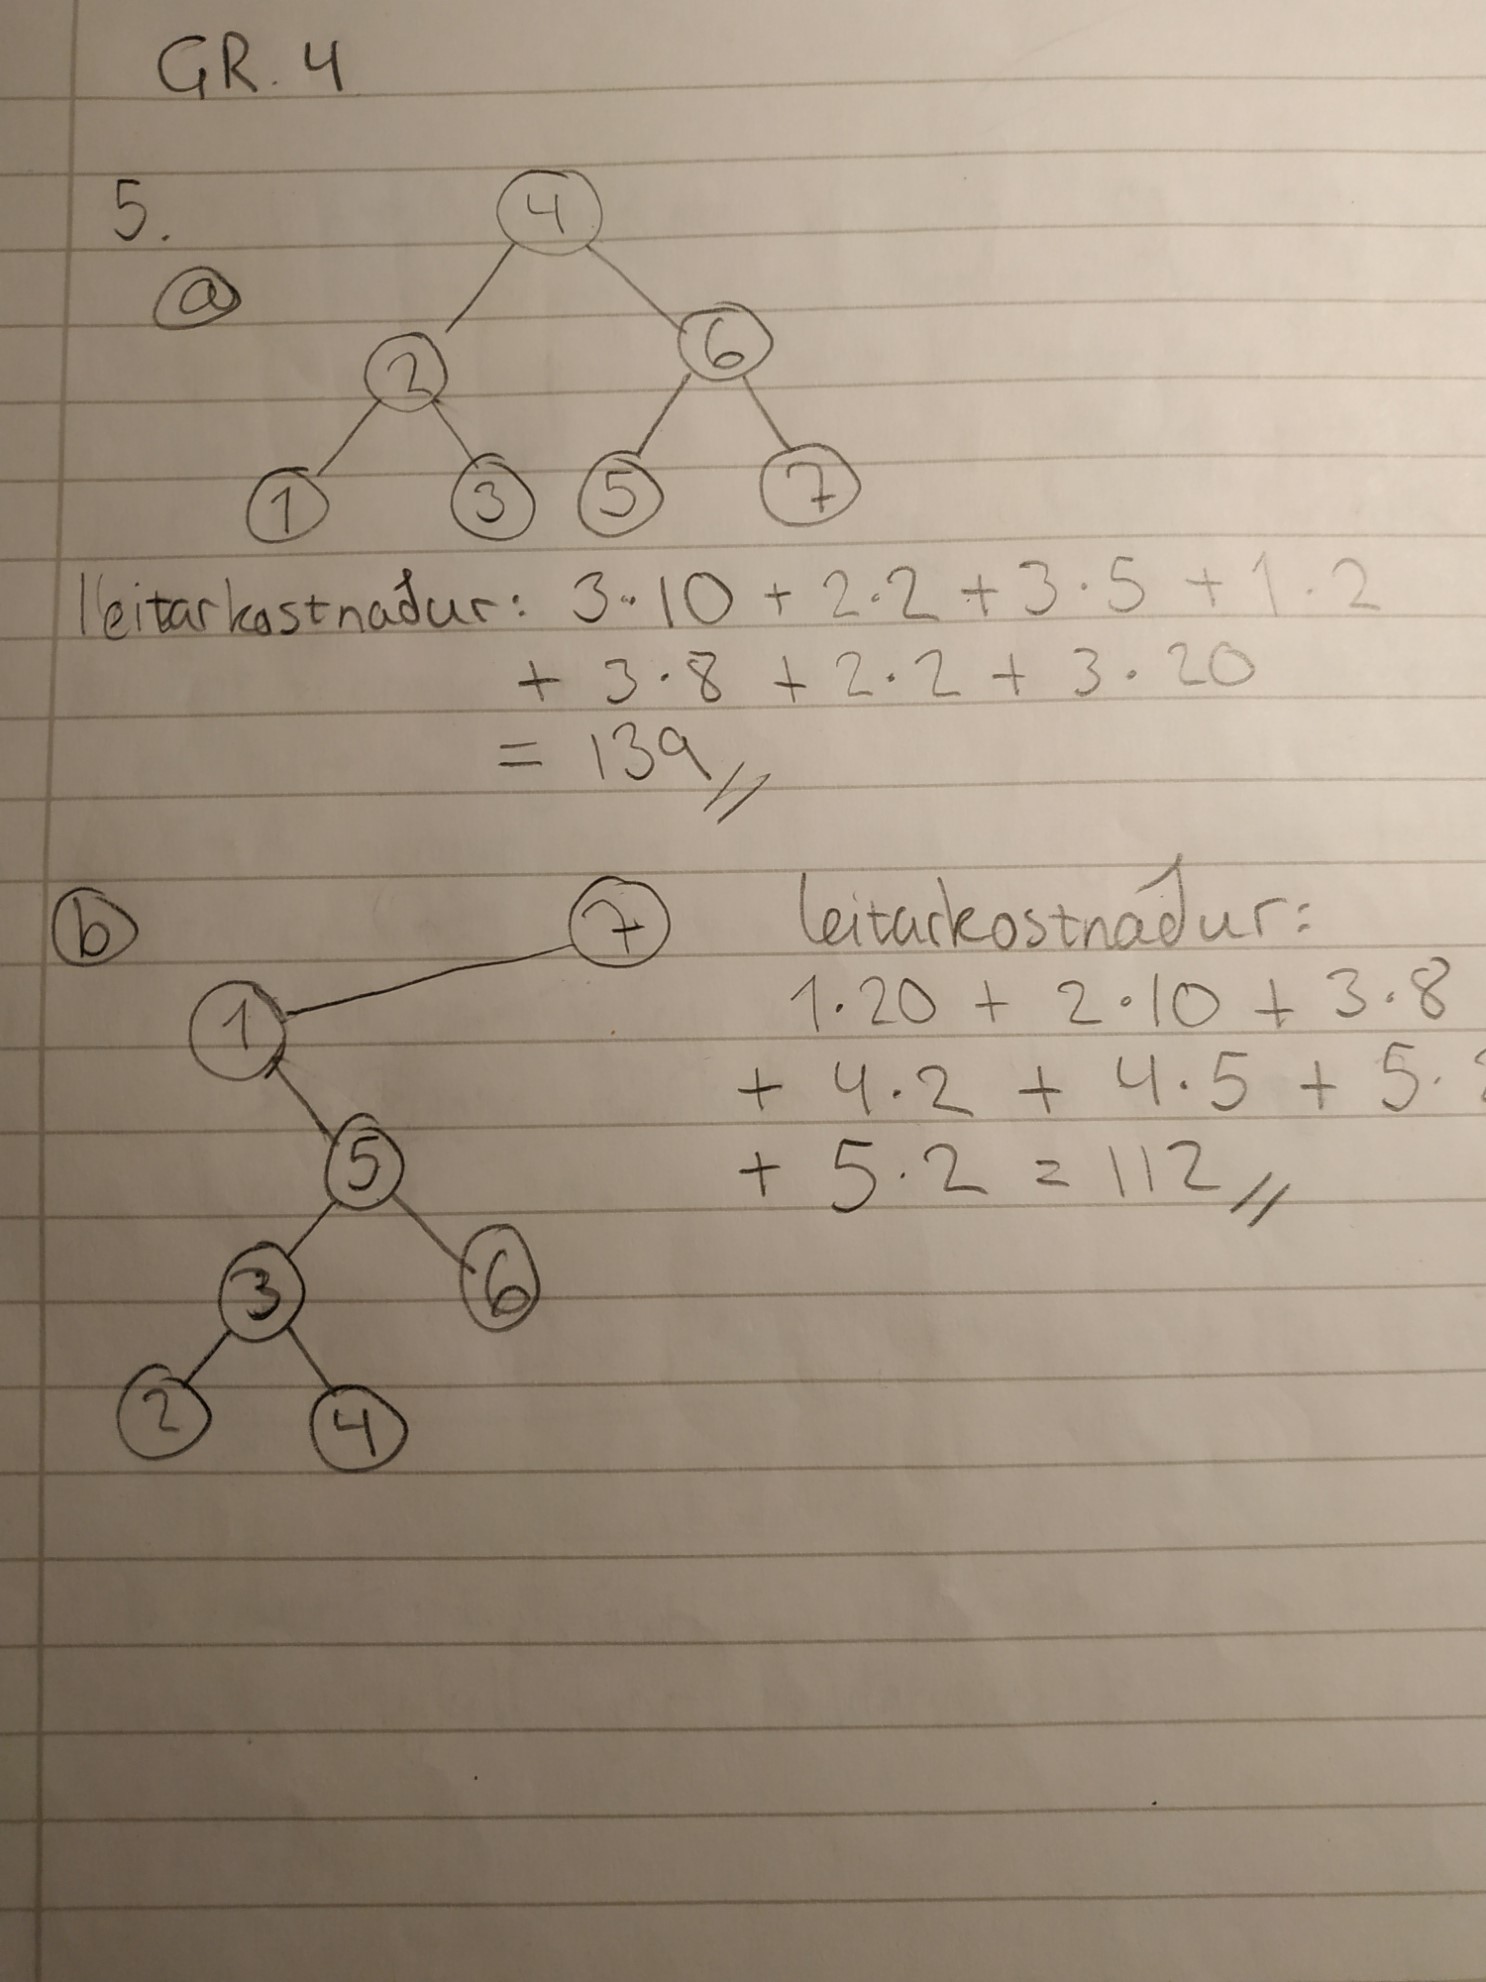 GR. 4
5.
a
4
2 6
1 3 5 7
leitarkostnaður: 3·10 + 2·2 + 3·5 + 1·2
+ 3·8 + 2·2 + 3·20
= 139
b
7
1
5
3 6
2 4
leitarkostnaður:
1·20 + 2·10 + 3·8
+ 4·2 + 4·5 + 5·
+ 5·2 = 112